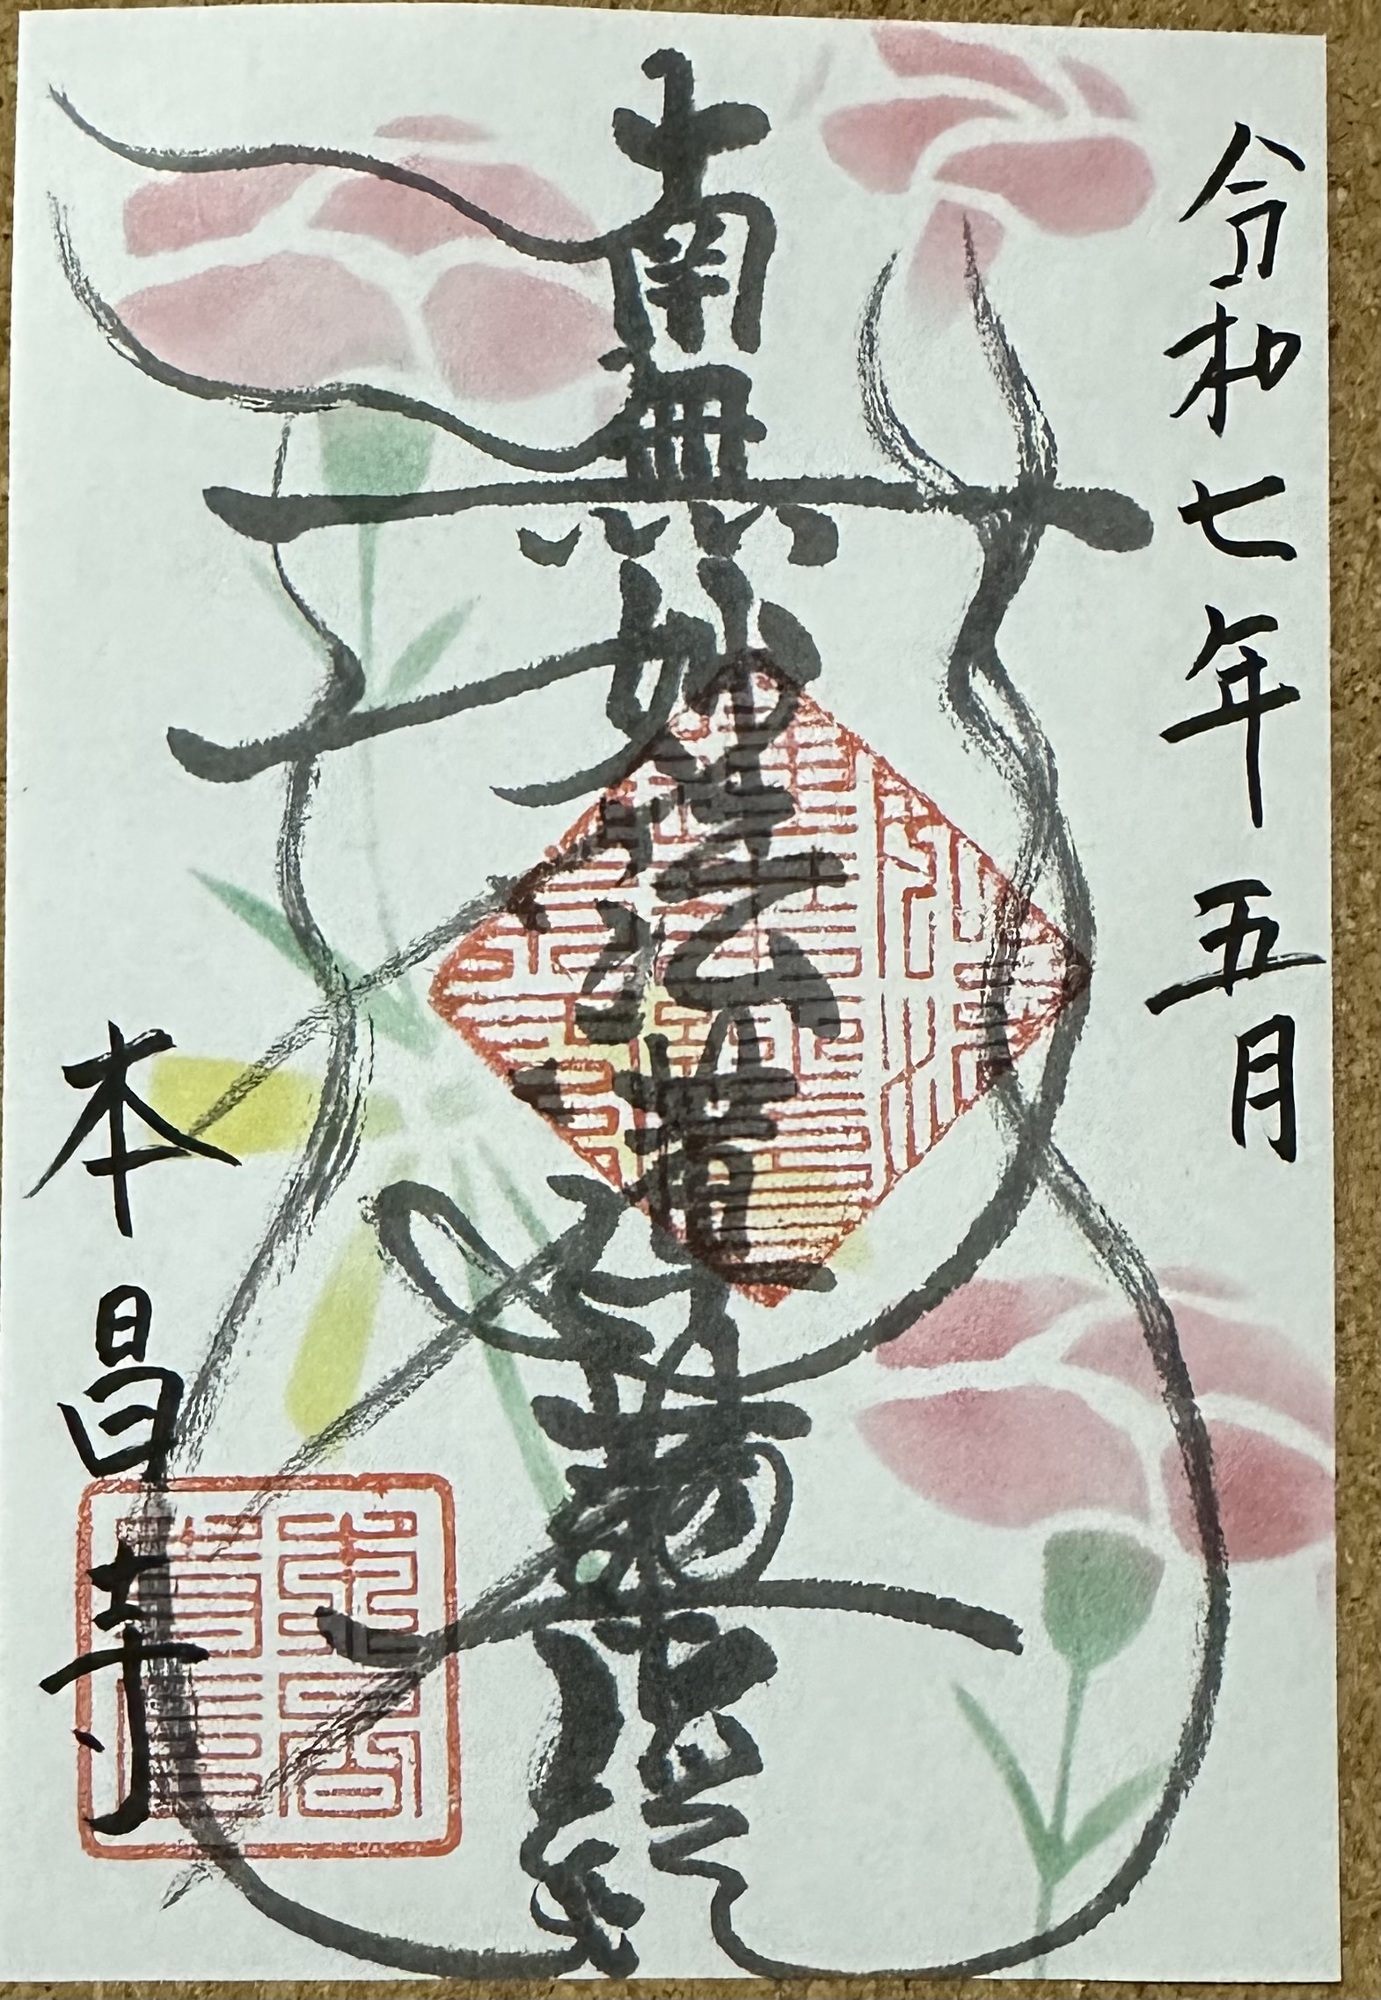 令和七年五月
南無妙法蓮華経
本昌寺